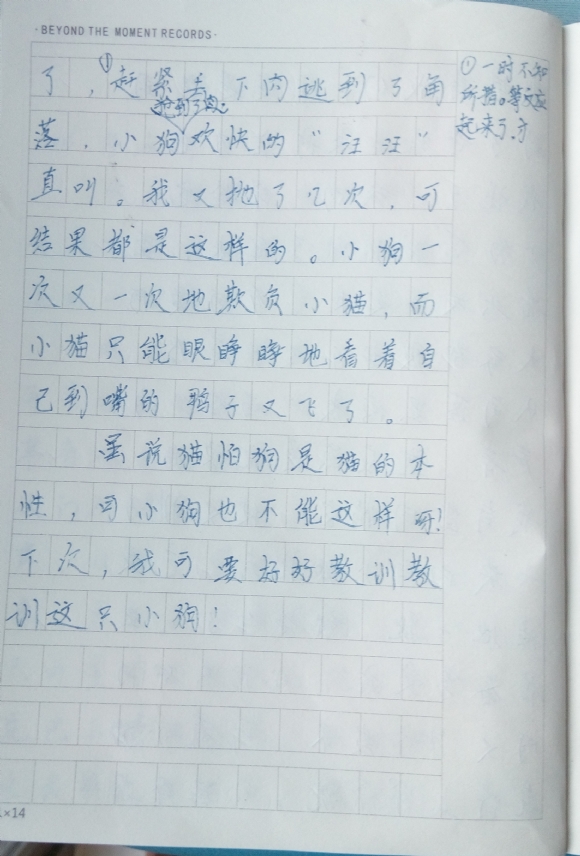 ·BEYOND THE MOMENT RECORDS·
了，①赶紧丢下肉逃到了角
抢到了肉
落，小狗欢快的“汪汪”
直叫。我又抛了几次，可
结果都是这样的。小狗一
次又一次地欺负小猫，而
小猫只能眼睁睁地看着自
己到嘴的鸭子又飞了。
虽说猫怕狗是猫的本
性，可小狗也不能这样呀！
下次，我可要好好教训教
训这只小狗！
①一时不知
所措。等反应
起来了，才
×14